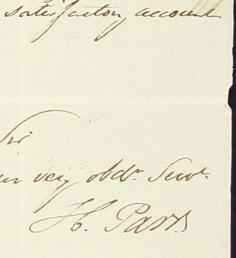 satisfactory account
Sir
very obdt. Servt.
H. Parr